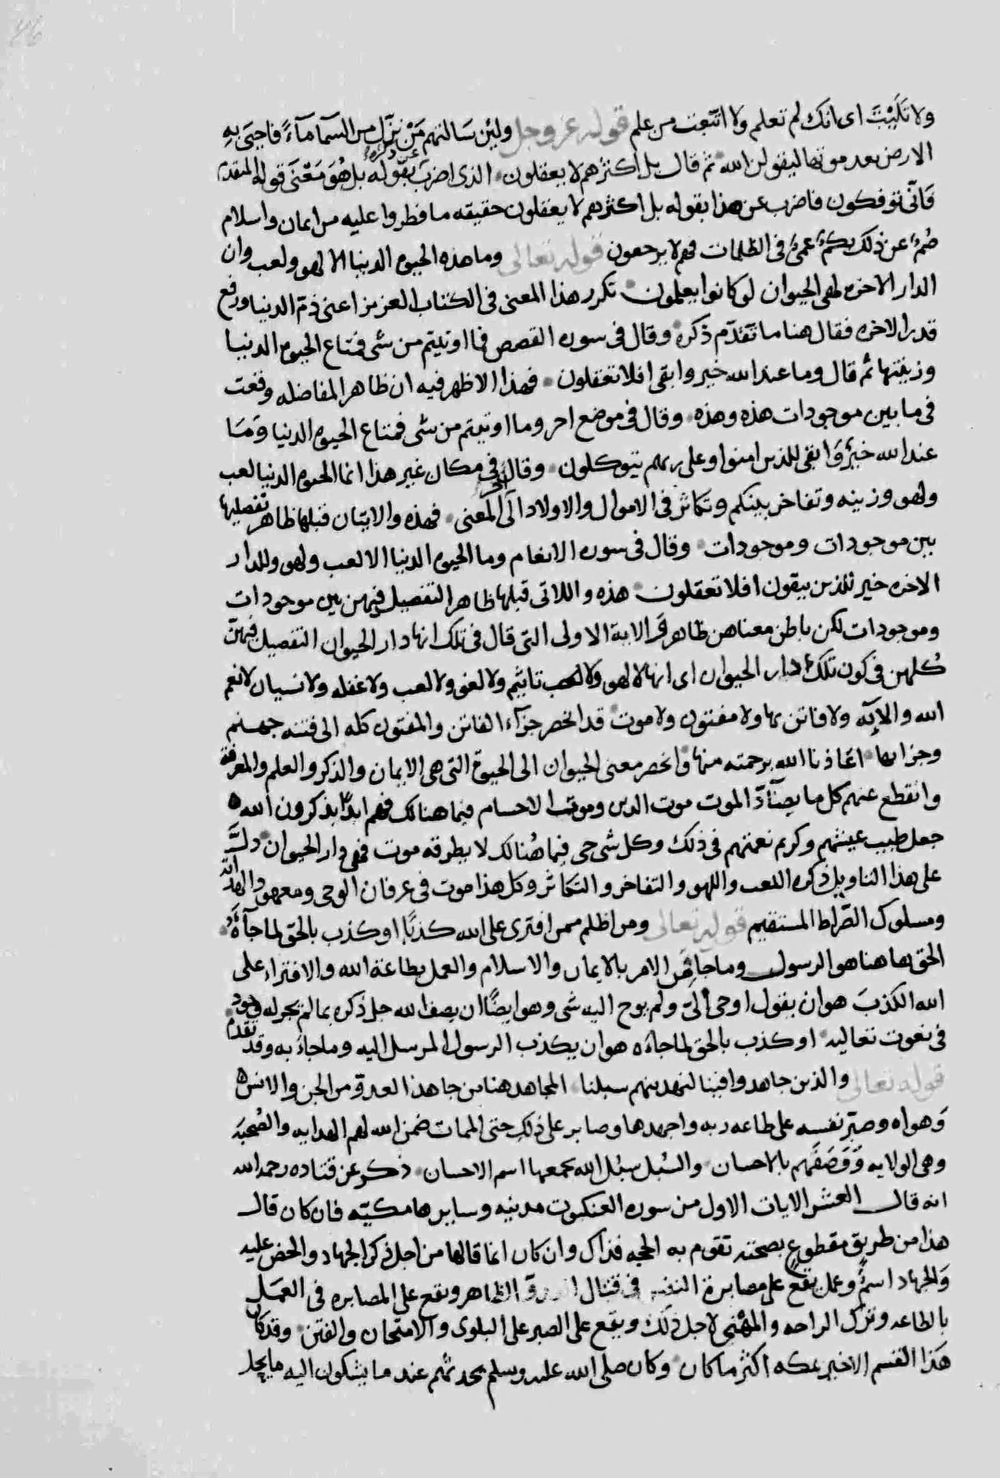 ولا تَلَيْتَ اى انك لم تعلم ولا اتبعت من علم قوله عز وجل ولين سالتهم مَنْ نزّل من السّمآ مآءً فاحيىَ بهِ
الارض بعد موتها ليقولن الله ثم قال بل اكثرهم لا يعقلون الذى اضرب عن ذكره بقوله بل هُوَ مَعْنَى قوله المتقدم
فَانّى توفكون فاضرب عن هذا بقوله بل اكثرهم لا يعقلون حقيقه ما فطروا عليه من ايمان واسلام
صُمٌ عن ذلك بكمٌ عمىٌ فى الظلمات فهم لا يرجعون قوله تعالى وما هذه الحيوه الدنيا الا لهو ولعب وان
الدار الاخره لهى الحيوان لو كانوا يعلمون تكرر هذا المعنى فى الكتاب العزيز اعنى ذمّ الدنيا ورفع
قدر الاخره فقال هنا ما تقدّم ذكرهُ وقال فى سوره القصص فما اوتيتم من شى فمتاع الحيوه الدنيا
وزينتها ثم قال وما عند الله خير وابقى افلا تعقلون فهذا الاظهر فيه ان ظاهر المفاضله وقعت
فى ما بين موجودات هذه وهذه وقال فى موضع اخر وما اوتيتم من شى فمتاع الحيوه الدنيا وَمَا
عند الله خيرٌ وَابقى للذين امنوا وعلى ربهم يتوكلون وقال فى مكان غير هذا انما الحيوه الدنيا لعب
ولهو وزينه وتفاخر بينكم وتكاثر فى الاموال والاولاد الى اخر المعنى فهذه والايتان قبلها ظاهر تفضيلها
بين موجودات وموجودات وقال فى سوره الانعام وما الحيوه الدنيا الا لعب ولهو وللدار
الاخره خير للذين يتقون افلا تعقلون هذه واللاتى قبلها ظاهر التفضيل فيهن بين موجودات
وموجودات لكن باطن معناهن ظاهر فى الاية الاولى التى قال فى تلك انها دار الحيوان التفضيل فيهنّ
كُلهن فى كون تلك دار الحيوان اى انها لا لهو ولا لعب تاثيم ولا لغو ولا لعب ولا غفله ولا نسيان لانعم
الله والايّه ولا فاتن بها ولا مفتون ولا موت قد انحصر جزآء الفاتن والمفتون كله الى فتنه جهنم
وجزايها اعاذنا الله برحمته منها وانحصر معنى الحيوان الى الحيوة التى هى الايمان والذكر والعلم والمعرفة
وانقطع عنهم كل ما يضآدّ الموت موت الدين وموت الاجسام فيما هنالك فهم ابدًا يذكرون الله
جعل طيب عيشهم وكريم نعمتهم فى ذلك وكل شى حى فيما هُنالك لا يطرقه موت فهى دار الحيوان دلّ
على هذا التاويل ذكره اللعب واللهو والتفاخر والتكاثر وكل هذا موت فى عرفان الوحى ومعهود الهدايه
ومسلوك الصّراط المستقيم قوله تعالى ومن اظلم ممن افترى على الله كذبًا او كذب بالحق لما جآءَهُ
الحق ها هنا هو الرسول وما جا به من الامر بالايمان والاسلام والعمل بطاعة الله والافتراء على
الله الكذبَ هو ان يقول اوحى الىّ ولم يوح اليه شى وهو ايضًا ان يصف الله جل ذكره بما لم يجر له وجود
فى نعوت تعاليه او كذب بالحق لما جاءَه هو ان يكذب الرسول المرسل اليه وما جاءَ به وقد تقدم
قوله تعالى والذين جاهدوا فينا لنهدينهم سبلنا المجاهد هنا من جاهد العدوّ من الجن والانس
وَهواه وصبّر نفسه على طاعه ربه واجهدها وصابر على ذلكِ حتى الممات ضمن الله لهم الهدايه والصُحبَه
وهى الولايه وَوَصَفَهم بالاحسان والسُبل سبُل الله يجمعها اسم الاحسان ذكر عن قتاده رحمه الله
انه قال العشر الايات الاول من سوره العنكبوت مدنيه وسايرها مكيّه فان كان قال
هذا من طريق مقطوع بصحته تقوم به الحجه فذاك وان كان انما قالها من اجل ذكر الجهاد والحض عليه
وَالجهاد اسمٌ وعمل يقع على مصابرة النفس فى قتال العدوّ الظاهر ويقع على المصابره فى العمَل
بالطاعه وترك الراحه والمهْنى لاجل ذلك ويقع على الصبر على البلوى والامتحان والفتن وقد كان
هَذا القسم الاخير بمكه اكثر ما كان وكان صلى الله عليه وسلم يحدثهم عند ما يشكون اليه ما يجد